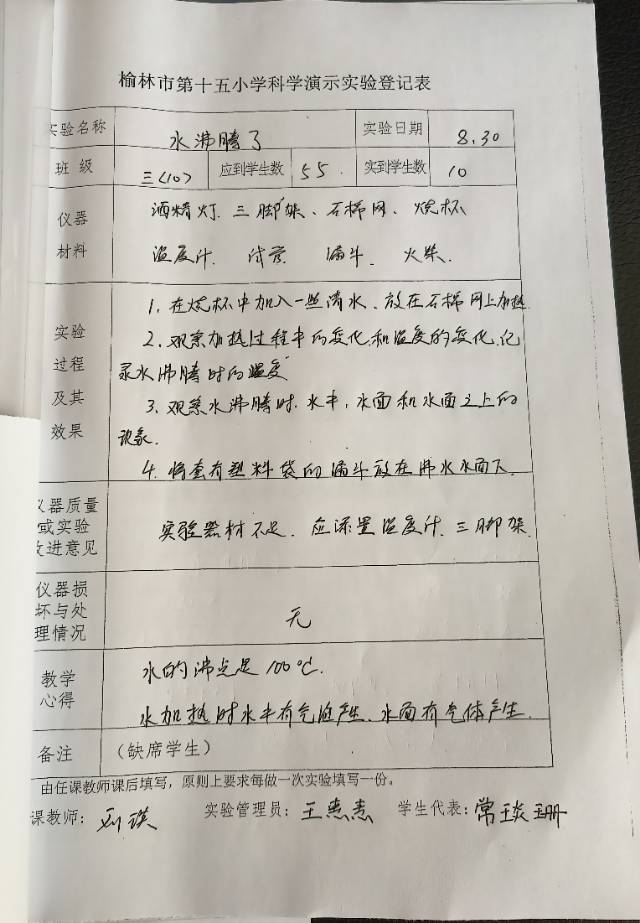 榆林市第十五小学科学演示实验登记表
实验名称 水沸腾了 实验日期 8.30
班 级 三(10) 应到学生数 55 实到学生数 10
仪器 酒精灯、三脚架、石棉网、烧杯
材料 温度计、试管 漏斗、火柴.
1. 在烧杯中加入一些清水、放在石棉网上加热
实验 2. 观察加热过程中的变化和温度的变化,记
过程 录水沸腾时的温度
及其 3. 观察水沸腾时,水中,水面和水面之上的
效果 现象.
4. 将套有塑料袋的漏斗放在沸水水面下.
仪器质量
或实验 实验器材不足. 应添置温度计、三脚架.
改进意见
仪器损
坏与处 无
理情况
教学 水的沸点是100℃.
心得 水加热时水中有气泡产生、水面有气体产生.
备注 (缺席学生)
由任课教师课后填写,原则上要求每做一次实验填写一份。
课教师: 刘瑛 实验管理员: 王惠惠 学生代表: 常琰珊